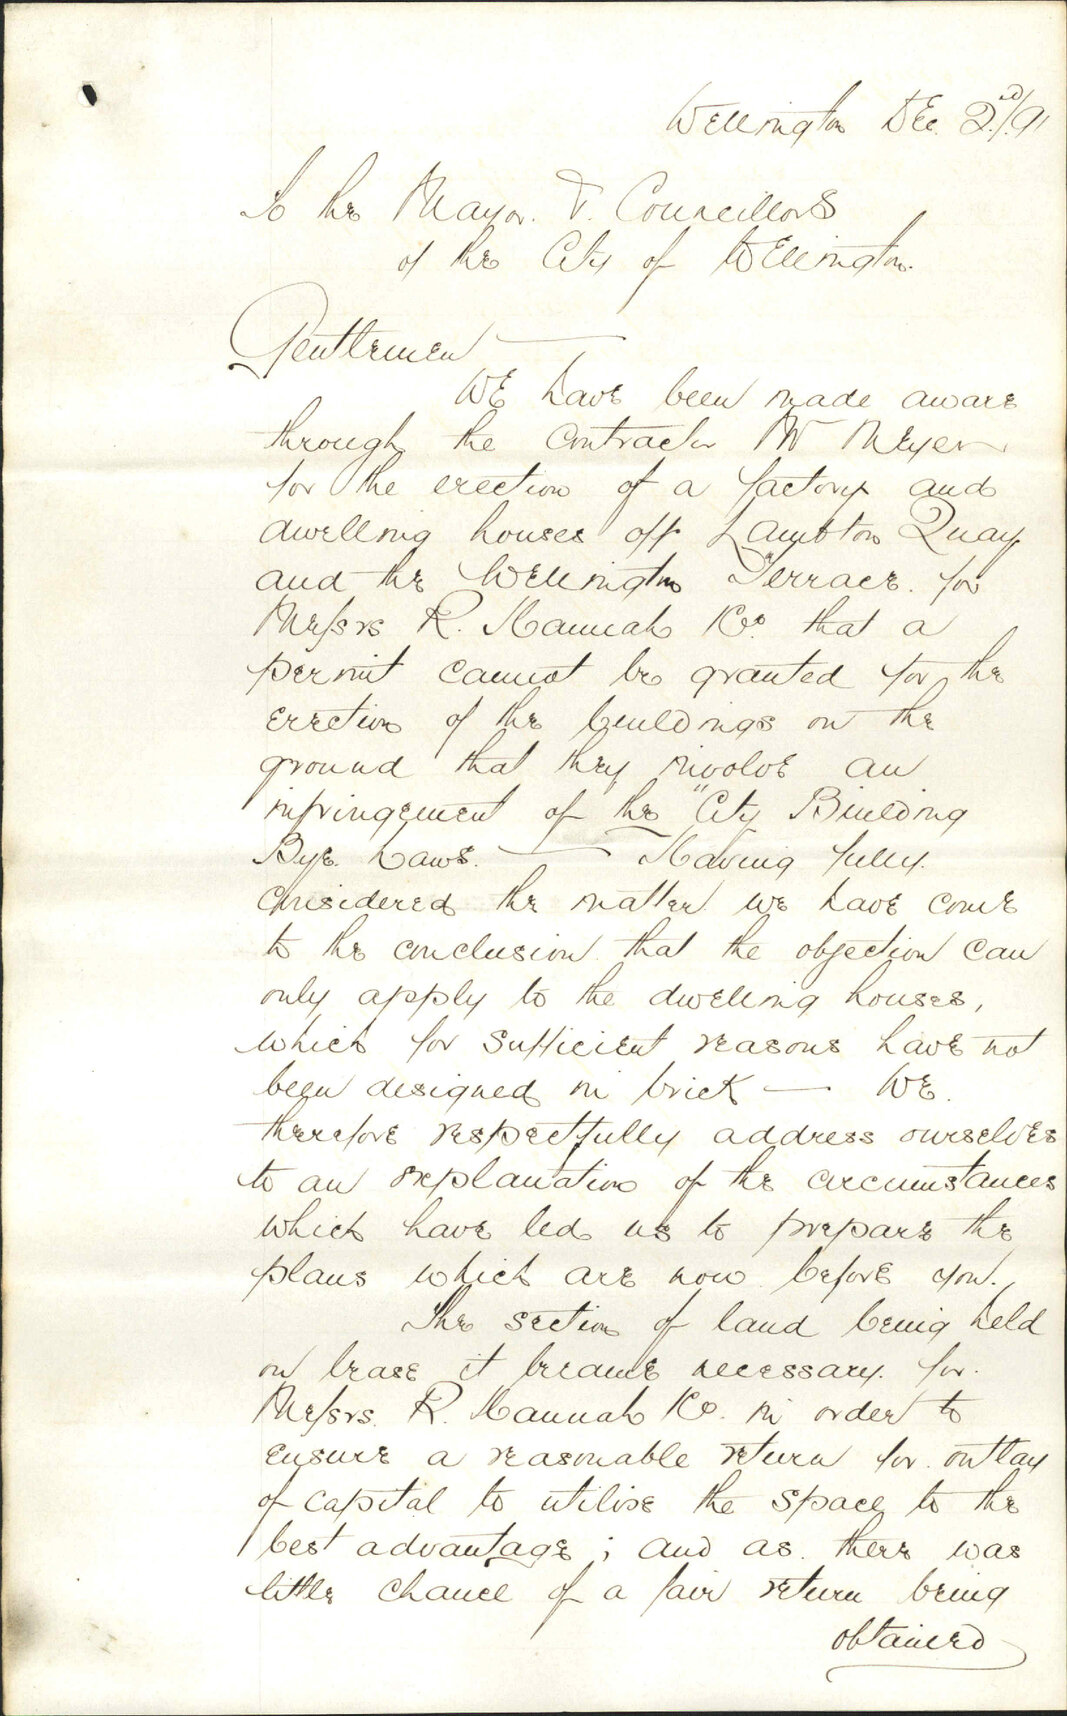 Wellington Dec. 2nd/91
To the Mayor & Councillors
of the City of Wellington.
Gentlemen —
We have been made aware
through the Contractor Mr Meyer
for the erection of a factory and
dwelling houses off Lambton Quay
and the Wellington Terrace for
Messrs R. Hannah & Co. that a
permit cannot be granted for the
erection of the buildings on the
ground that they involve an
infringement of the "City Building
Bye Laws. — Having fully
considered the matter we have come
to the conclusion that the objection can
only apply to the dwelling houses,
which for sufficient reasons have not
been designed in brick — We
therefore respectfully address ourselves
to an explanation of the circumstances
which have led us to prepare the
plans which are now before you.
The section of land being held
on lease it became necessary for
Messrs. R. Hannah & Co. in order to
ensure a reasonable return for outlay
of capital to utilise the space to the
best advantage; and as there was
little chance of a fair return being
obtained